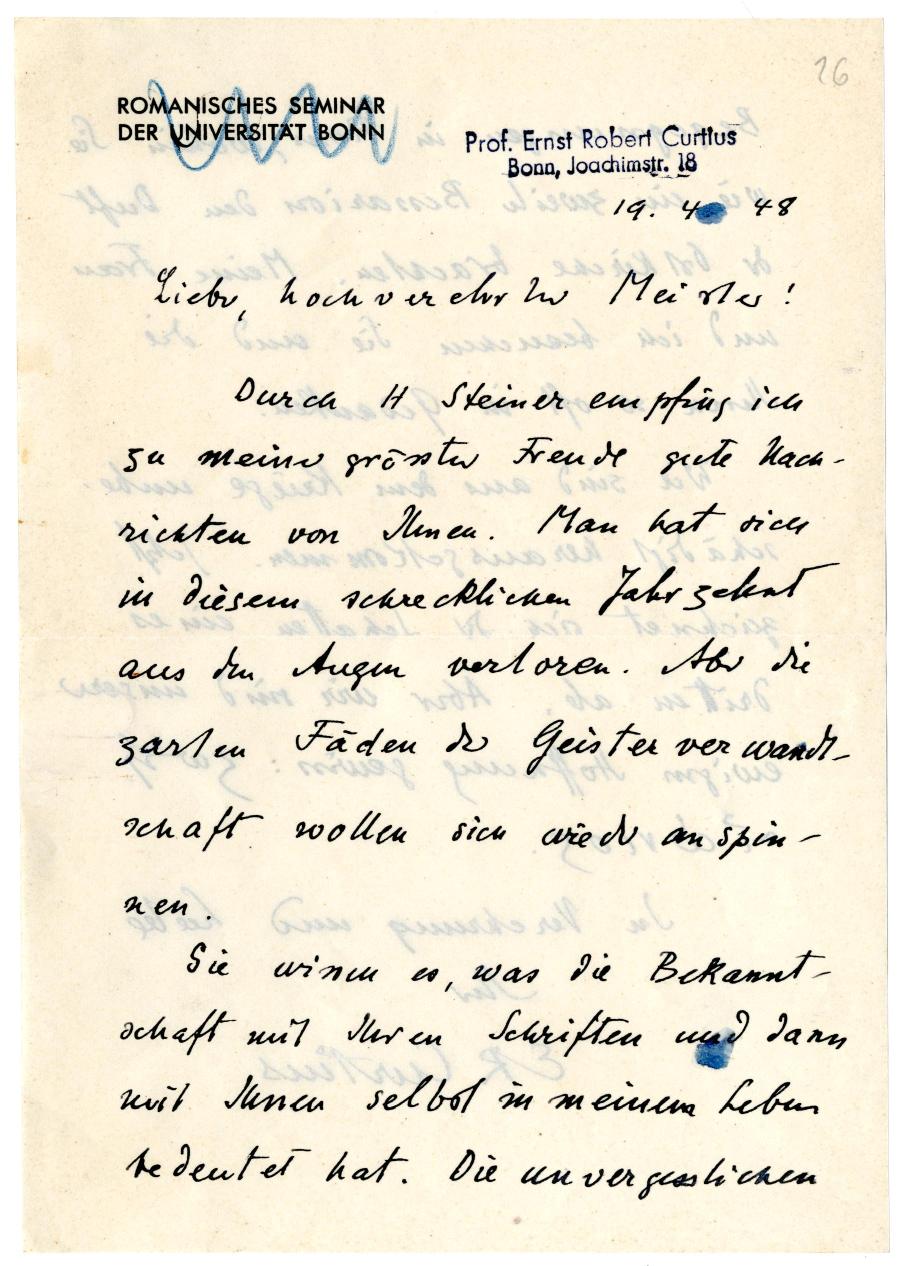 26
ROMANISCHES SEMINAR
DER UNIVERSITÄT BONN
Prof. Ernst Robert Curtius
Bonn, Joachimstr. 18
19. 4. 48
Lieber, hochverehrter Meister!
Durch H Steiner empfing ich
zu meiner grössten Freude gute Nach-
richten von Ihnen. Man hat sich
in diesem schrecklichen Jahrzehnt
aus den Augen verloren. Aber die
zarten Fäden der Geisterverwandt-
schaft wollen sich wieder anspin-
nen.
Sie wissen es, was die Bekannt-
schaft mit Ihren Schriften und dann
mit Ihnen selbst in meinem Leben
bedeutet hat. Die unvergesslichen